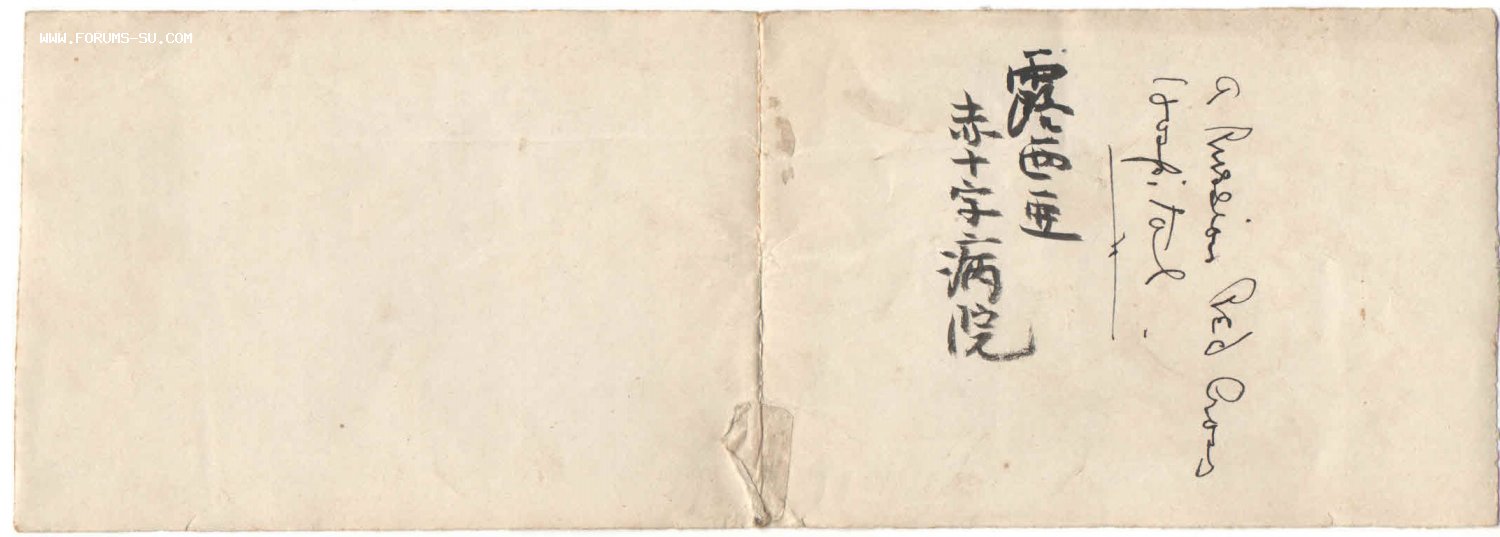 WWW.FORUMS-SU.COM
a Russian Red Cross
Hospital.
露西亜
赤十字病院